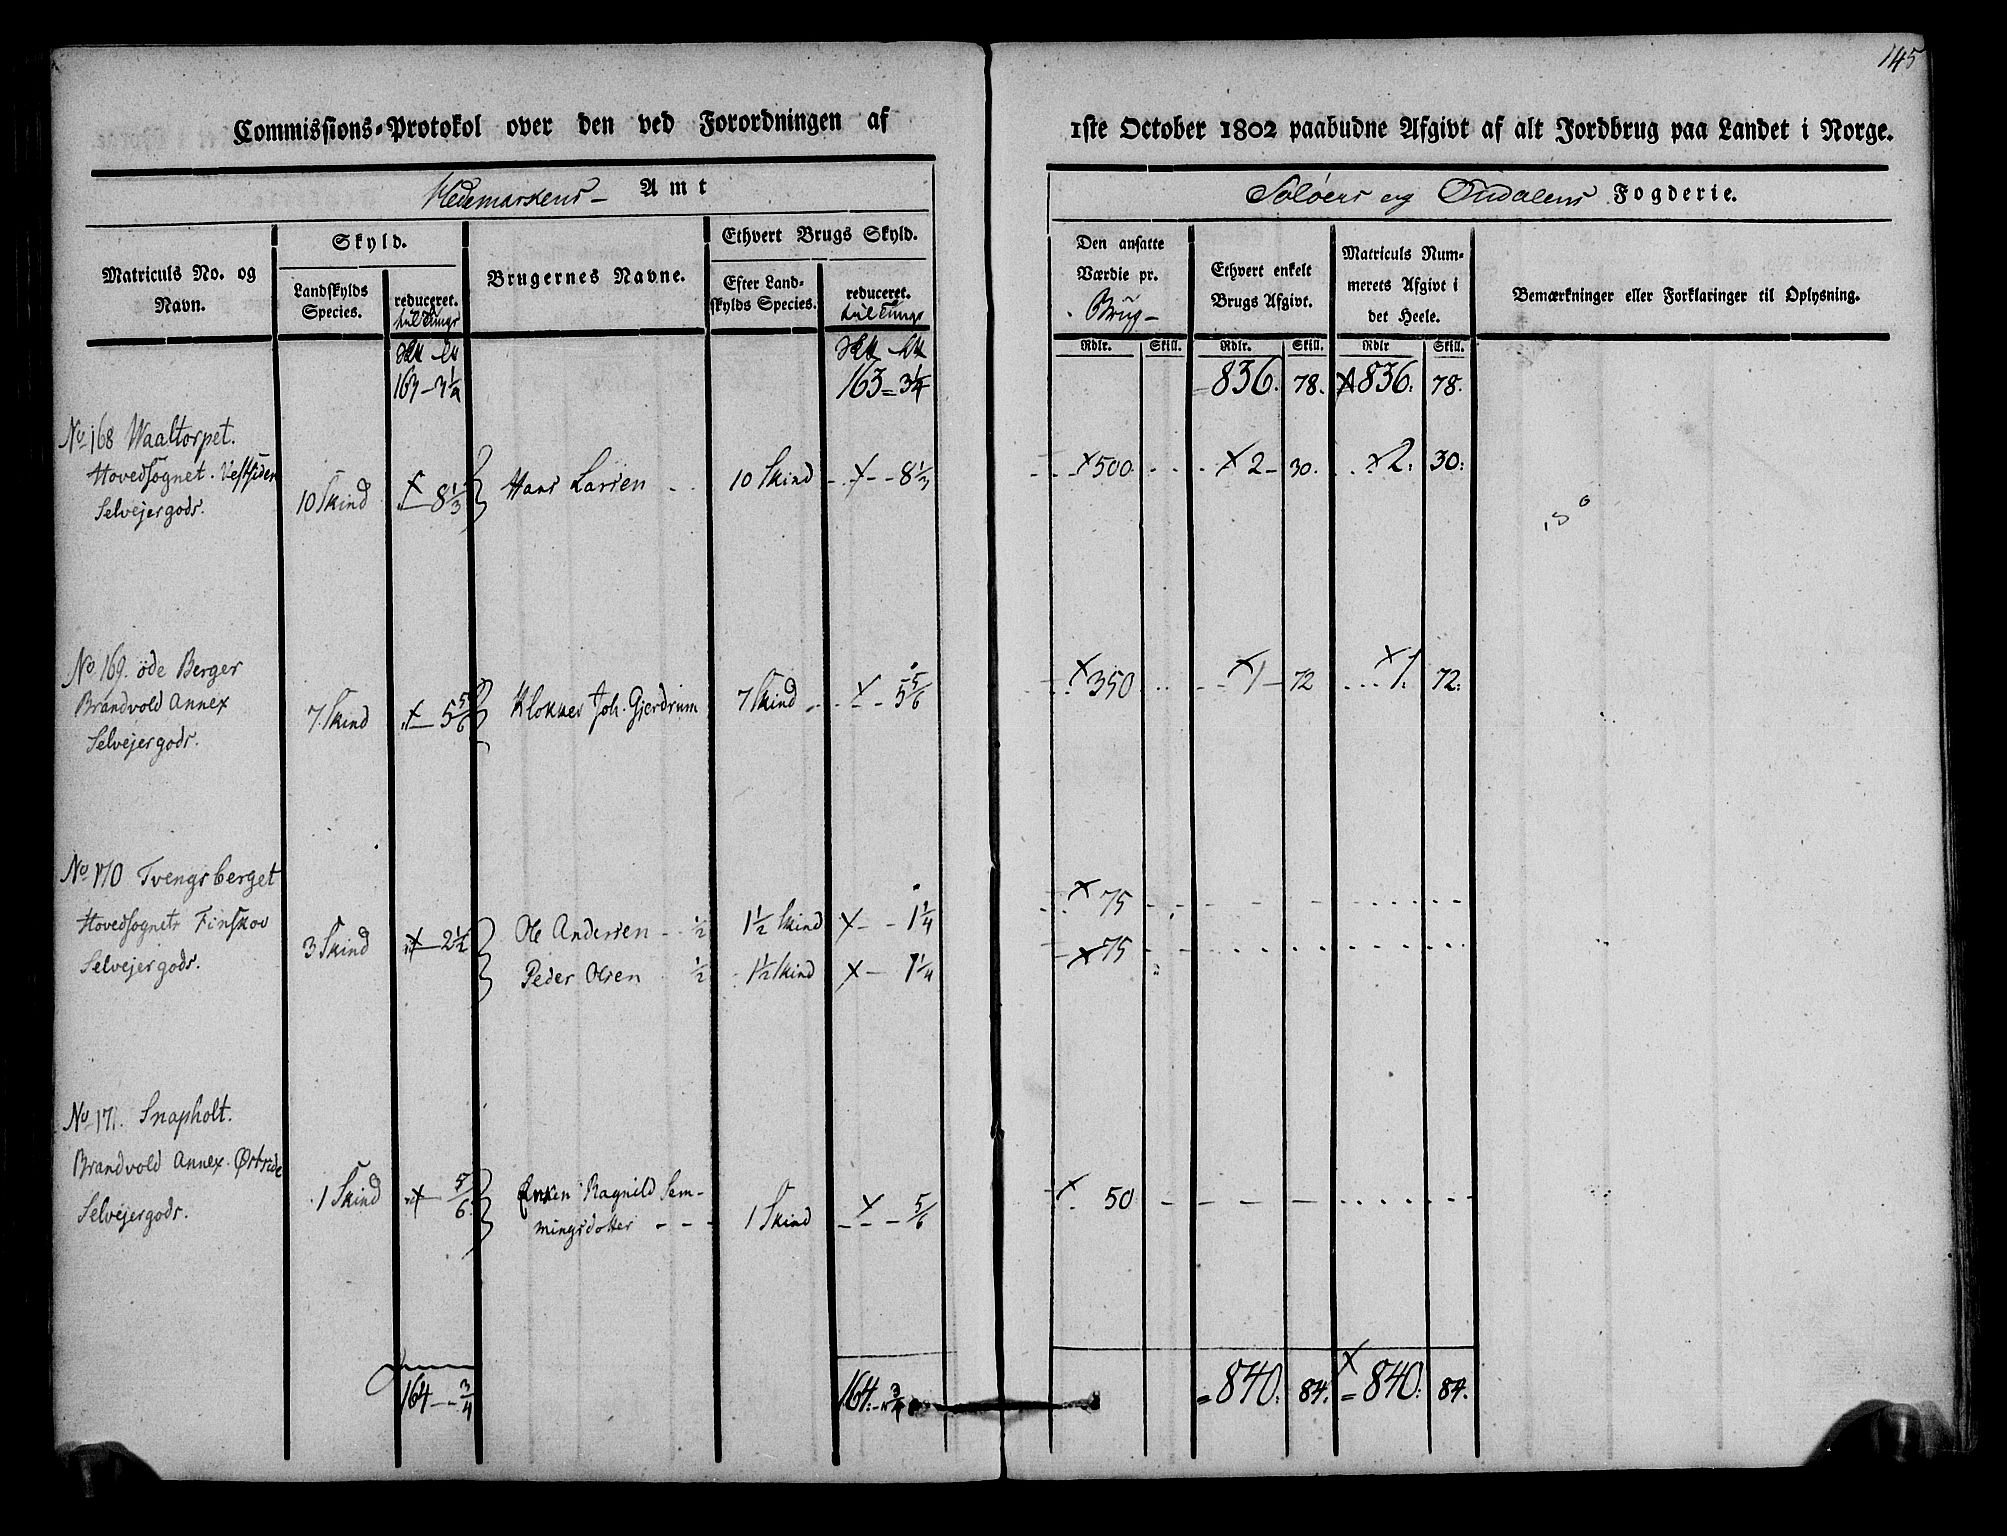 145
Commissions-Protokol over den ved Forordningen af 1ste October 1802 paabudne Afgivt af alt Jordbrug paa Landet i Norge.
Hedemarkens Amt
Soløers og Oudalens Fogderie.
Matriculs No. og Navn.
Skyld.
Landskylds Species.
reduceret.
til Tunge
Brugernes Navne.
Ethvert Brugs Skyld.
Efter Landskylds Species.
reduceret.
til Tunge
Den ansatte Værdie pr. Brug
Ethvert enkelt Brugs Afgivt.
Matriculs Nummerets Afgivt i det Heele.
Bemærkninger eller Forklaringer til Oplysning.
Rdlr. Skill. Rdlr. Skill. Rdlr Skill.
163 - 3 1/4 163 = 3 1/4 836. 78. 836. 78.
No 168 Waaltorpet.
Hovedsognet. Vestsiden
Selvejergods.
10 Skind 8 1/3 Hans Larsen 10 Skind 8 1/3 500 2 - 30. 2. 30:
No 169. öde Berger
Brandvold Annex
Selvejergods.
7 Skind 5 5/6 Klokker Joh. Gjerdrum 7 Skind 5 5/6 350 1 - 72 1. 72:
No 170 Tvengsberget
Hovedsognets Finskov
Selvejergods.
3 Skind 2 1/2 Ole Andersen 1/2 1 1/2 Skind 1 1/4 75
Peder Olsen 1/2 1 1/2 Skind 1 1/4 75
No 171. Snapholt.
Brandvold Annex. Østside
Selvejergods.
1 Skind 5/6 Enken Ragnild Sem-
mingsdotter 1 Skind 5/6 50
164 - 3/4 164. 3/4 840. 84. 840. 84.